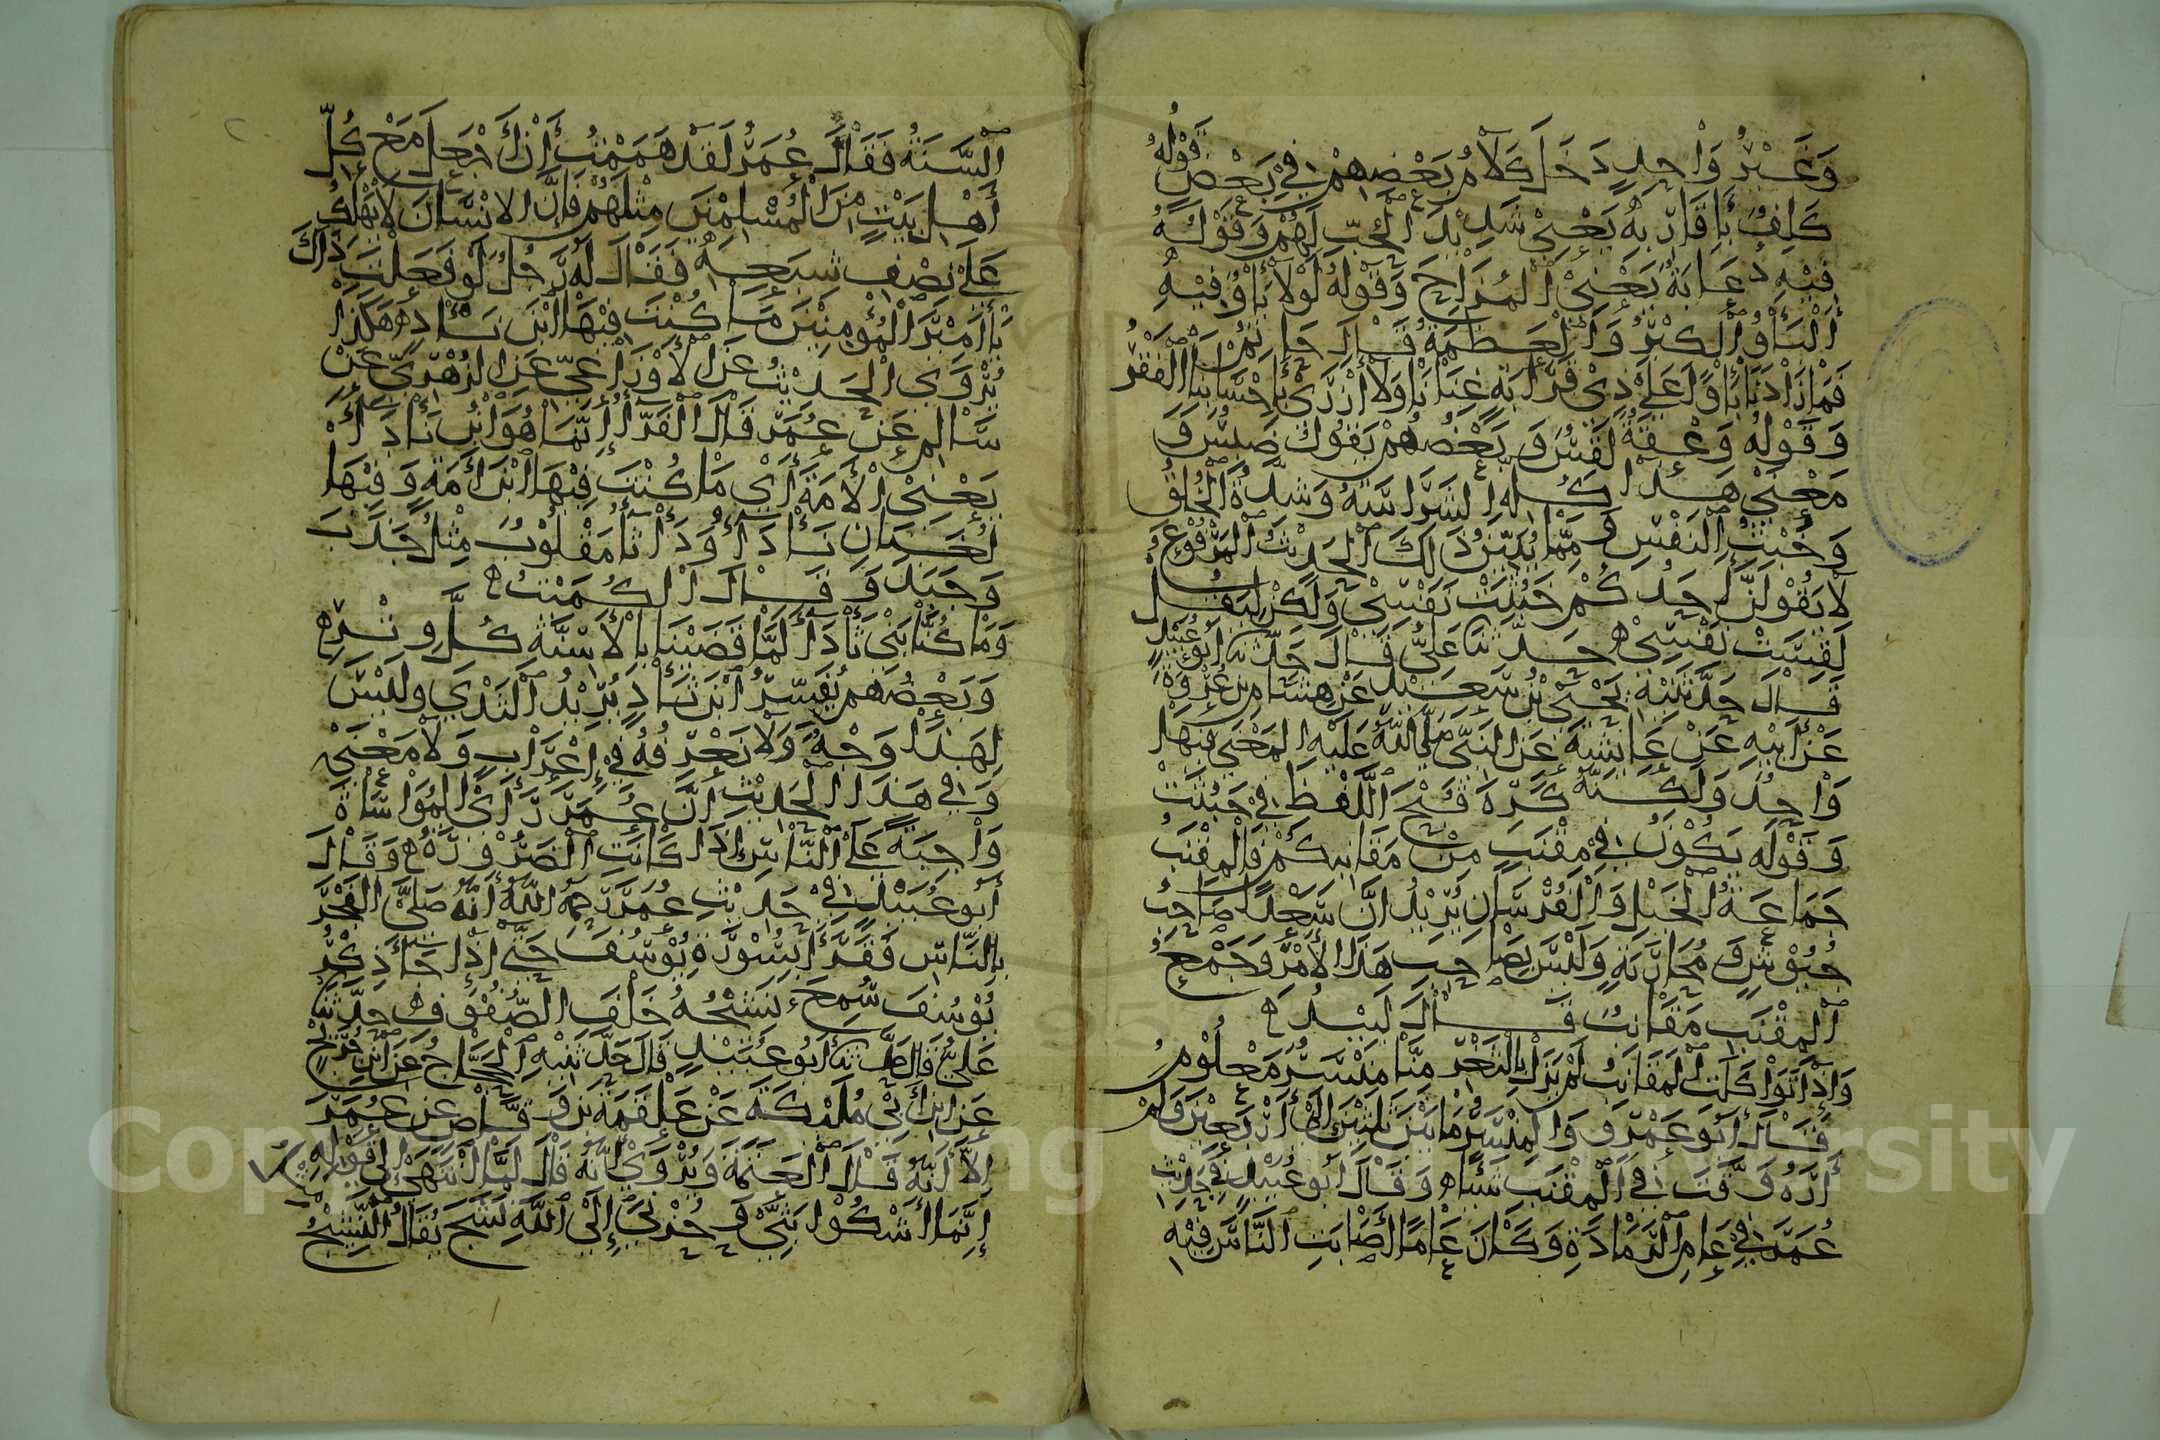 وَغَيْرُ وَاحِدٍ دَخَلَ كَلَامُ بَعْضِهِمْ فِي بَعْضٍ قَوْلُهُ
كَلِفٌ بِأَقَارِبِهِ يَعْنِي شَدِيدَ الْحُبِّ لَهُمْ وَقَوْلُهُ
فِيهِ دُعَابَةٌ يَعْنِي الْمُزَاحَ وَقَوْلُهُ لَوْلَا بَأْوٌ فِيهِ
اَلْبَأْوُ الْكِبْرُ وَالْعَظَمَةُ قَالَ حَاتِمٌ
فَمَا زَادَنَا بَأْوًا عَلَى ذِي قَرَابَةٍ غِنَانَا وَلَا أَزْرَى بِأَحْسَابِنَا الْفَقْرُ
وَقَوْلُهُ وَعْقَةٌ لَقِسٌ وَبَعْضُهُمْ يَقُولُ ضَبِسٌ وَ
مَعْنَى هَذَا كُلِّهِ الشَّرَاسَةُ وَشِدَّةُ الْخُلُقِ
وَخُبْثُ النَّفْسِ وَمِمَّا يُبَيِّنُ ذَلِكَ الْحَدِيثُ الْمَرْفُوعُ
لَا يَقُولَنَّ أَحَدُكُمْ خَبُثَتْ نَفْسِي وَلَكِنْ لِيَقُلْ
لَقِسَتْ نَفْسِي حَدَّثَنَا عَلِيٌّ قَالَ حَدَّثَنَا أَبُو عُبَيْدٍ
قَالَ حَدَّثَنِيهِ يَحْيَى بْنُ سَعِيدٍ عَنْ هِشَامِ بْنِ عُرْوَةَ
عَنْ أَبِيهِ عَنْ عَائِشَةَ عَنِ النَّبِيِّ صَلَّى اللَّهُ عَلَيْهِ الْمَعْنَى فِيهَا
وَاحِدٌ وَلَكِنَّهُ كَرِهَ قُبْحَ اللَّفْظِ فِي خَبُثَتْ
وَقَوْلُهُ يَكُونُ فِي مِقْنَبٍ مِنْ مَقَانِبِكُمْ فَالْمِقْنَبُ
جَمَاعَةُ الْخَيْلِ وَالْفُرْسَانِ يُرِيدُ أَنَّ سَعْدًا صَاحِبُ
جُيُوشٍ وَمُحَارَبَةٍ وَلَيْسَ بِصَاحِبِ هَذَا الْأَمْرِ وَجَمْعُ
الْمِقْنَبِ مَقَانِبُ قَالَ لَبِيدٌ
وَإِذَا تَوَاكَلَتِ الْمَقَانِبُ لَمْ يَزَلْ بِالثَّغْرِ مِنَّا مِنْسَرٌ مَعْلُومٌ
قَالَ أَبُو عَمْرٍو وَالْمِنْسَرُ مَا بَيْنَ ثَلَاثِينَ إِلَى أَرْبَعِينَ وَلَمْ
أَرَهُ وَقَّتَ فِي الْمِقْنَبِ شَيْئًا وَقَالَ أَبُو عُبَيْدٍ فِي حَدِيثِ
عُمَرَ فِي عَامِ الرَّمَادَةِ وَكَانَ عَامًا أَصَابَتِ النَّاسَ فِيهِ
السَّنَةُ فَقَالَ عُمَرُ لَقَدْ هَمَمْتُ أَنْ أَجْعَلَ مَعَ كُلِّ
أَهْلِ بَيْتٍ مِنَ الْمُسْلِمِينَ مِثْلَهُمْ فَإِنَّ الْإِنْسَانَ لَا يَهْلِكُ
عَلَى نِصْفِ شِبَعِهِ فَقَالَ لَهُ رَجُلٌ لَوْ فَعَلْتَ ذَاكَ
يَا أَمِيرَ الْمُؤْمِنِينَ مَا كُنْتَ فِيهَا ابْنَ ثَأْدٍ هَكَذَا
يُرْوَى الْحَدِيثُ عَنِ الْأَوْزَاعِيِّ عَنِ الزُّهْرِيِّ عَنْ
سَالِمٍ عَنْ عُمَرَ قَالَ الْفَرَّاءُ إِنَّمَا هُوَ ابْنُ ثَأْدَاءَ
يَعْنِي الْأَمَةَ أَيْ مَا كُنْتَ فِيهَا ابْنَ أَمَةٍ وَفِيهَا
لُغَتَانِ ثَأْدَاءُ وَدَأْثَاءُ مَقْلُوبٌ مِثْلُ جَذَبَ
وَجَبَذَ وَقَالَ الْكُمَيْتُ
وَمَا كُنَّا بَنِي ثَأْدَاءَ لَمَّا قَضَيْنَا بِالْأَسِنَّةِ كُلَّ وِتْرِ
وَبَعْضُهُمْ يُفَسِّرُ ابْنَ ثَأْدٍ يُرِيدُ الثَّدْيَ وَلَيْسَ
لِهَذَا وَجْهٌ وَلَا نَعْرِفُهُ فِي إِعْرَابٍ وَلَا مَعْنًى
وَفِي هَذَا الْحَدِيثِ أَنَّ عُمَرَ رَأَى الْمُوَاسَاةَ
وَاجِبَةً عَلَى النَّاسِ إِذَا كَانَتِ الضَّرُورَةُ وَقَالَ
أَبُو عُبَيْدٍ فِي حَدِيثِ عُمَرَ رَحِمَهُ اللَّهُ أَنَّهُ صَلَّى الْفَجْرَ
بِالنَّاسِ فَقَرَأَ بِسُورَةِ يُوسُفَ حَتَّى إِذَا جَاءَ ذِكْرُ
يُوسُفَ سُمِعَ نَشِيجُهُ خَلْفَ الصُّفُوفِ حَدَّثَنَا
عَلِيٌّ قَالَ حَدَّثَنَا أَبُو عُبَيْدٍ قَالَ حَدَّثَنِيهِ الْحَجَّاجُ عَنِ ابْنِ جُرَيْجٍ
عَنِ ابْنِ أَبِي مُلَيْكَةَ عَنْ عَلْقَمَةَ بْنِ وَقَّاصٍ عَنْ عُمَرَ
إِلَّا أَنَّهُ قَالَ الْعَتَمَةَ وَيُرْوَى أَنَّهُ قَالَ لَمَّا انْتَهَى إِلَى قَوْلِهِ
إِنَّمَا أَشْكُو بَثِّي وَحُزْنِي إِلَى اللَّهِ نَشَجَ يُقَالُ النَّشْجُ